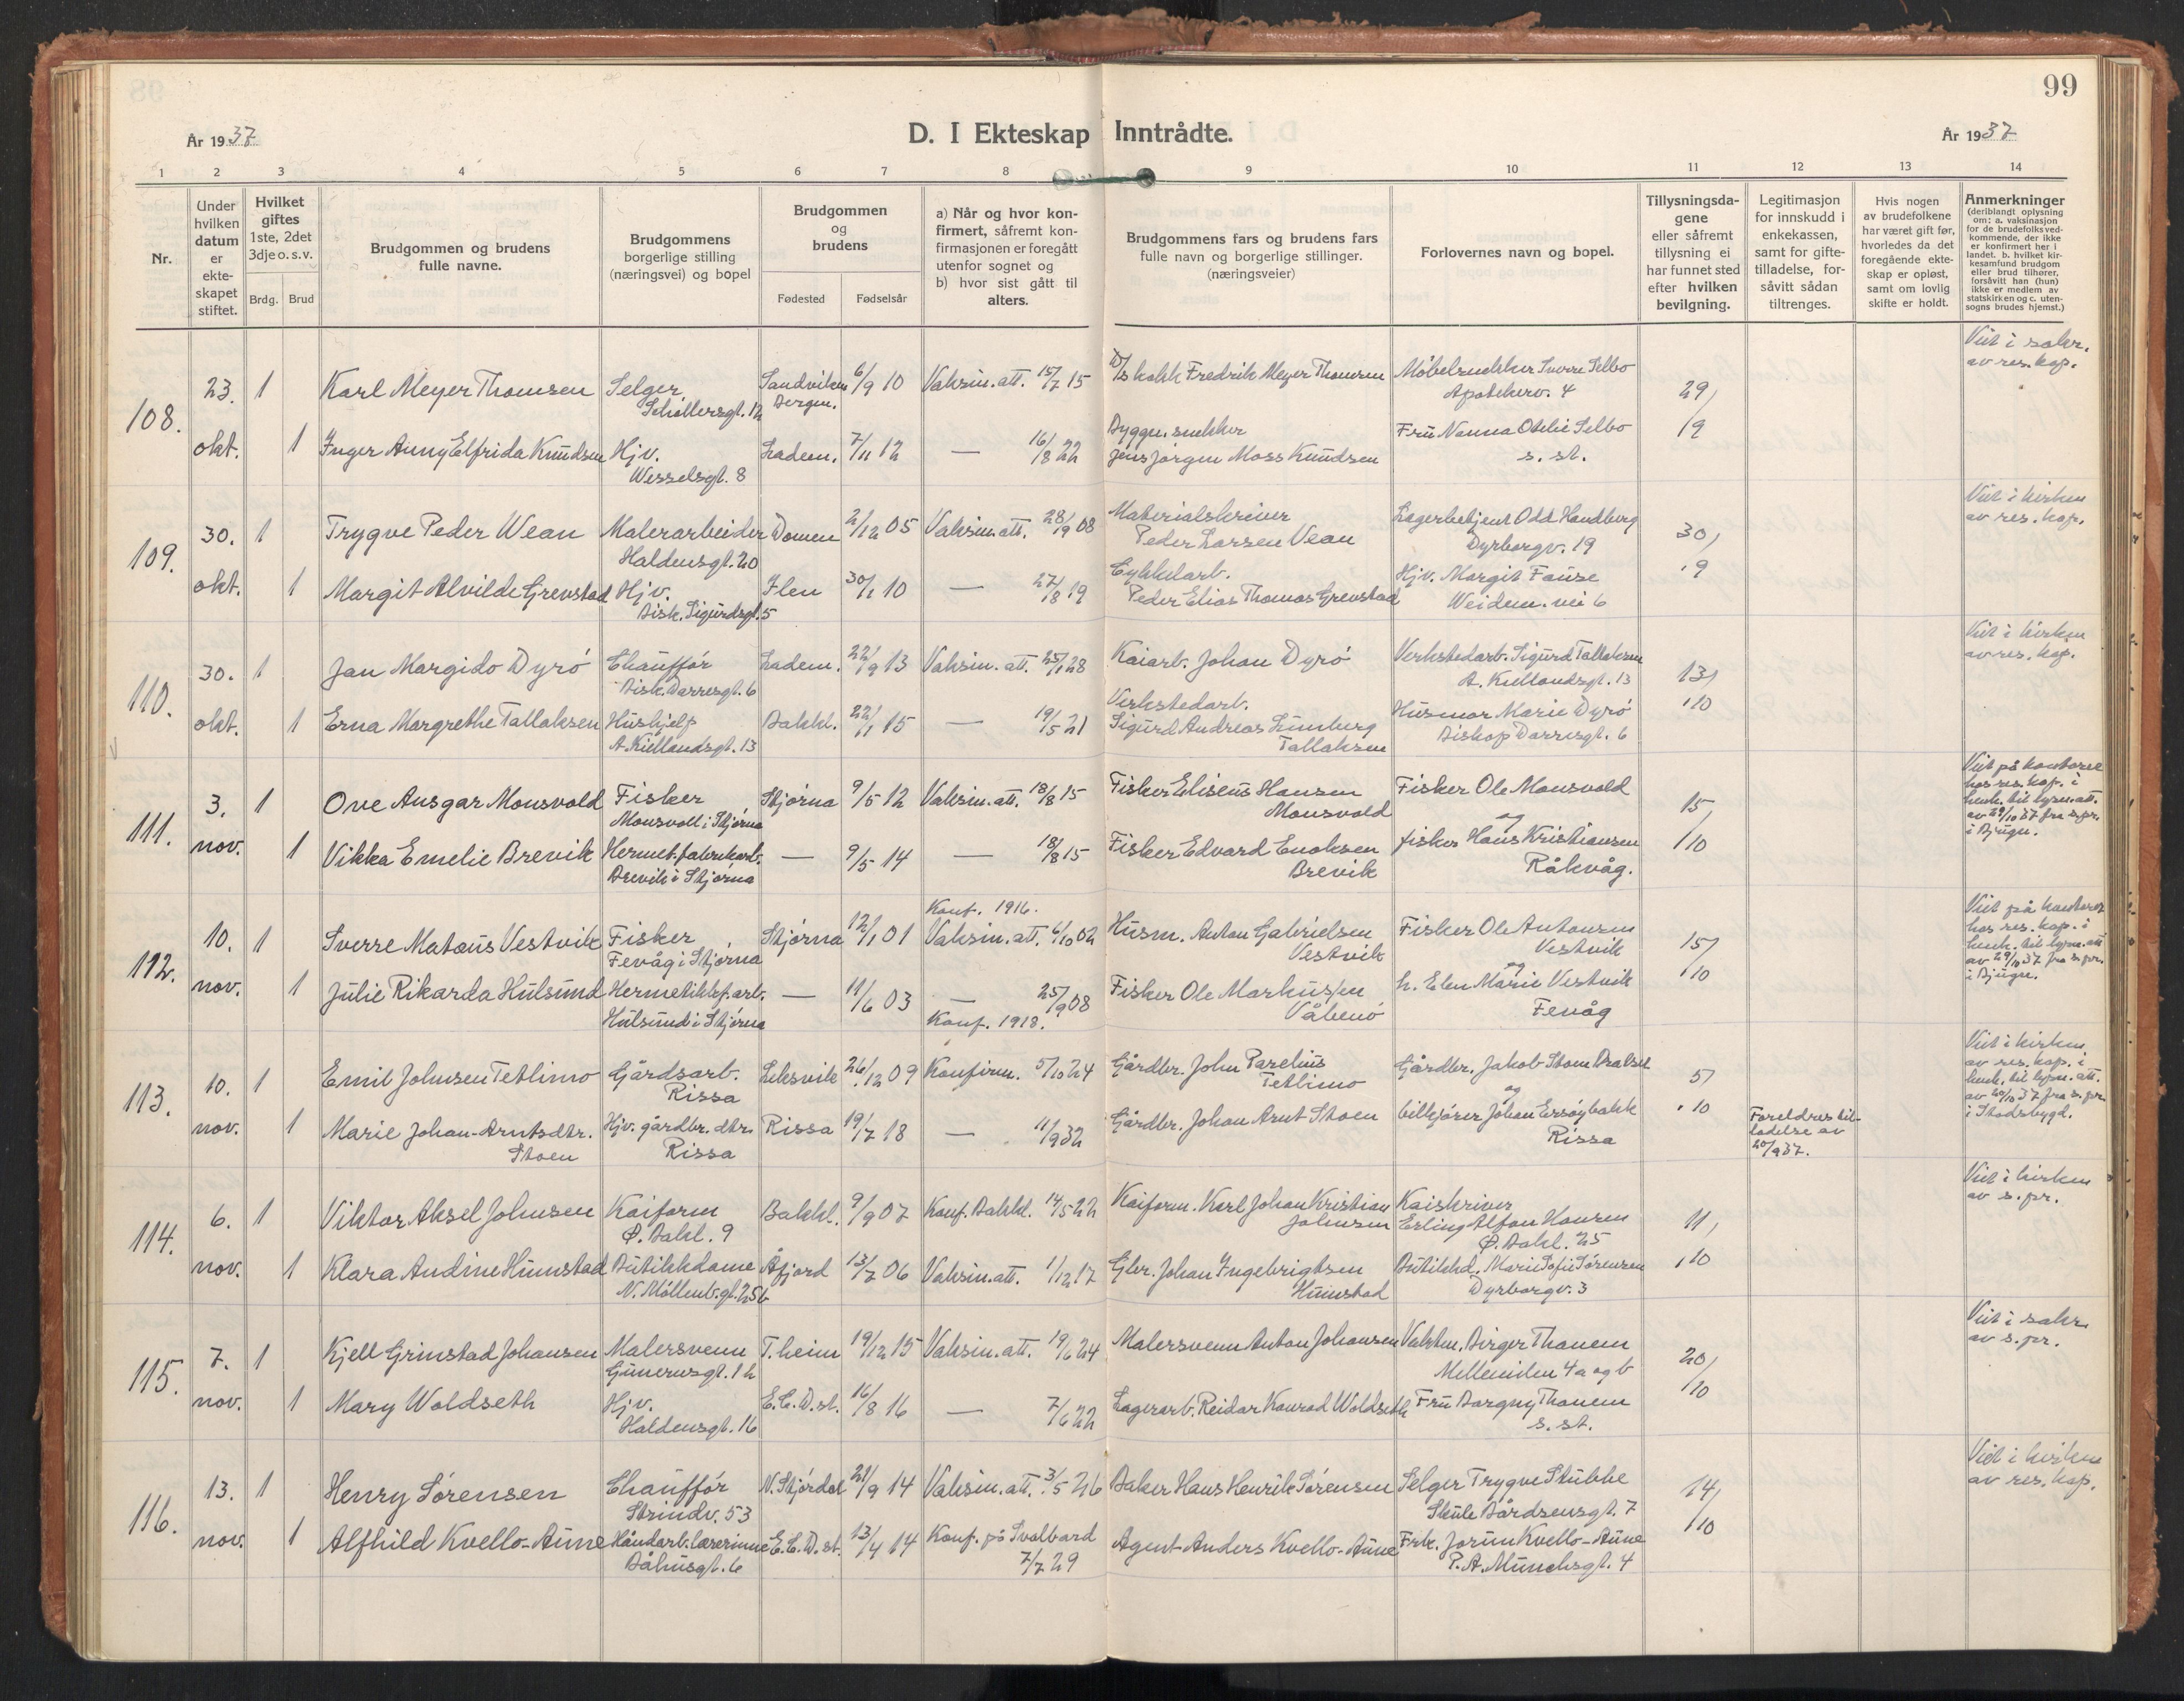 99
År 1937
D. I Ekteskap Inntrådte.
År 1937
1 2 3 4 5 6 7 8 9 10 11 12 13 14
Nr.
Under hvilken datum er ekte-skapet stiftet.
Hvilket giftes 1ste, 2det 3dje o. s. v.
Brdg. Brud
Brudgommen og brudens fulle navne.
Brudgommens borgerlige stilling (næringsvei) og bopel
Brudgommen og brudens
Fødested Fødselsår
a) Når og hvor kon-firmert, såfremt kon-firmasjonen er foregått utenfor sognet og b) hvor sist gått til alters.
Brudgommens fars og brudens fars fulle navn og borgerlige stillinger. (næringsveier)
Forlovernes navn og bopel.
Tillysningsda-gene eller såfremt tillysning ei har funnet sted efter hvilken bevilgning.
Legitimasjon for innskudd i enkekassen, samt for gifte-tilladelse, for-såvitt sådan tiltrenges.
Hvis nogen av brudefolkene har været gift før, hvorledes da det foregående ekte-skap er opløst, samt om lovlig skifte er holdt.
Anmerkninger (deriblandt oplysning om: a. vaksinasjon for de brudefolks ved-kommende, der ikke er konfirmert her i landet. b. hvilket kir-kesamfund brudgom eller brud tilhører, forsåvitt han (hun) ikke er medlem av statskirken og c. uten-sogns brudes hjemst.)
108. 23. 1 Karl Meyer Thomsen Selger Sandviken 6/9 10 Vaksin. att. 15/7 15 D/s kokk Fredrik Meyer Thomsen Møbelsnekker Sverre Selbo 29/ Viet i sakr.
Schøllersgt. 12 Bergen. Apotekerv. 4 av res. kap.
okt. 1 Inger Anny Elfrida Knudsen Hjv. Ladem. 7/11 12 — 16/8 22 Byggn. snekker Fru Nanna Otelie Selbo /9
Wesselsgt. 8 Jens Jørgen Moss Knudsen s. st.
109. 30. 1 Trygve Peder Wean Malerarbeider Domen 2/12 05 Vaksin. att. 28/9 08 Materialskriver Lagerbetjent Odd Handberg 30/ Viet i kirken
Haldensgt. 20 Peder Larsen Vean Dyrborgv. 19 av res. kap.
okt. 1 Margit Alvilde Grevstad Hjv. Ilen 30/1 10 — 27/8 19 Cykkelarb. Hjv. Margit Fause 9
Bisk. Sigurdsgt. 5 Peder Elias Thomas Grevstad Weidem. vei 6
110. 30. 1 Jan Margido Dyrø Chauffør Ladem. 22/9 13 Vaksin. att. 25/1 28 Kaiarb. Johan Dyrø Verkstedarb. Sigurd Tallaksen 13/ Viet i kirken
Bisk. Darresgt. 6 A. Kiellandsgt. 13 av res. kap.
okt. 1 Erna Margrethe Tallaksen Hushjelp Bakkl. 22/1 15 — 19/5 21 Verkstedarb. Husmor Marie Dyrø 10
A. Kiellandsgt. 13 Sigurd Andreas Lumberg Tallaksen Biskop Darresgt. 6
111. 3. 1 Ove Ansgar Monsvold Fisker Stjørna 9/5 12 Vaksin. att. 18/8 15 Fisker Eliseus Hansen Fisker Ole Monsvold 15/ Viet på kontoret
Monsvoll i Stjørna Monsvold og hos res. kap. i
nov. 1 Vikka Emelie Brevik Hermet. fabrikarb. — 9/5 14 — 18/8 15 Fisker Edvard Enoksen fisker Hans Kristiansen /10 henh. til lysn. att.
Brevik i Stjørna Brevik Råkvåg. av 29/10 37 fra s.pr. i Bjugn.
112. 10. 1 Sverre Mataus Vestvik Fisker Stjørna 12/1 01 Konf. 1916. Vaksin. att. 6/10 02 Husm. Anton Gabrielsen Fisker Ole Antonsen 15/ Viet på kontoret
Fevåg i Stjørna Vestvik Vestvik hos res. kap. i
nov. 1 Julie Rikarda Hulsund Hermetikkf. arb. — 11/6 03 — 25/9 08 Fisker Ole Markussen og h. Elen Marie Vestvik 10 henh. til lysn. att.
Hulsund i Stjørna Konf. 1918. Våbenø Fevåg av 29/10 37 fra s.pr. i Bjugn.
113. 10. 1 Emil Johnsen Tetlimo Gårdsarb. Leksvik 26/12 09 Konfirm. 5/10 24 Gårdbr. John Parelius Gårdbr. Jakob 5/ Viet i kirken
Rissa Tetlimo og av res. kap. i
nov. 1 Marie Johan-Arntsdtr. Hjv. gårdbr. dtr. Rissa 19/7 18 — 11/9 32 Gårdbr. Johan Arnt Stoen bilkjører Johan Ersøybakk 10 Foreldres til- henh. til lysn. att.
Stoen Rissa Rissa ladelse av av 20/10 37 fra s.pr.
20/9 37. i Stadsbygd.
114. 6. 1 Viktor Aksel Johnsen Kaiform Bakkl. 9/9 07 Konf. Bakkl. 14/5 22 Kaiform. Karl Johan Kristian Kaiskriver 11/ Viet i kirken
Ø. Bakl. 9 Johnsen Erling Alfon Hansen av s. pr.
Ø. Bakl. 25
nov. 1 Klara Andine Humstad Butikkdame Åfjord 13/7 06 Vaksin. att. 1/12 17 Gbr. Johan Ingebrigtsen Butikkd. Marie Sofie Sørensen 10
N. Møllenb. gt. 25b Humstad Dyrborgv. 3
115. 7. 1 Kjell Grinstad Johansen Malersvenn T.heim 19/12 15 Vaksin. att. 19/6 24 Malersvenn Anton Johansen Vaktm. Birger Thanem 20/ Viet i sakr.
Gunerusgt. 12 Mellemilen 4a og b av s. pr.
nov. 1 Mary Woldseth Hjv. E.C.D.st. 16/8 16 — 7/6 22 Lagerarb. Reidar Konrad Woldseth Fru Borgny Thanem /10
Haldensgt. 16 s. st.
116. 13. 1 Henry Sørensen Chauffør N. Stjørdal 21/9 14 Vaksin. att. 3/5 26 Baker Hans Henrik Sørensen Selger Trygve Stubbe 14/ Viet i kirken
Strindv. 53 Skule Bårdsensgt. 7 av res. kap.
nov. 1 Alfhild Kvello-Aune Håndarb. lærerinne E.C.D.st. 13/4 14 Konf. på Svalbard Agent Anders Kvello-Aune Frk. Jorun Kvello-Aune /10
Båhusgt. 6 7/7 29 P. A. Munchsgt. 4